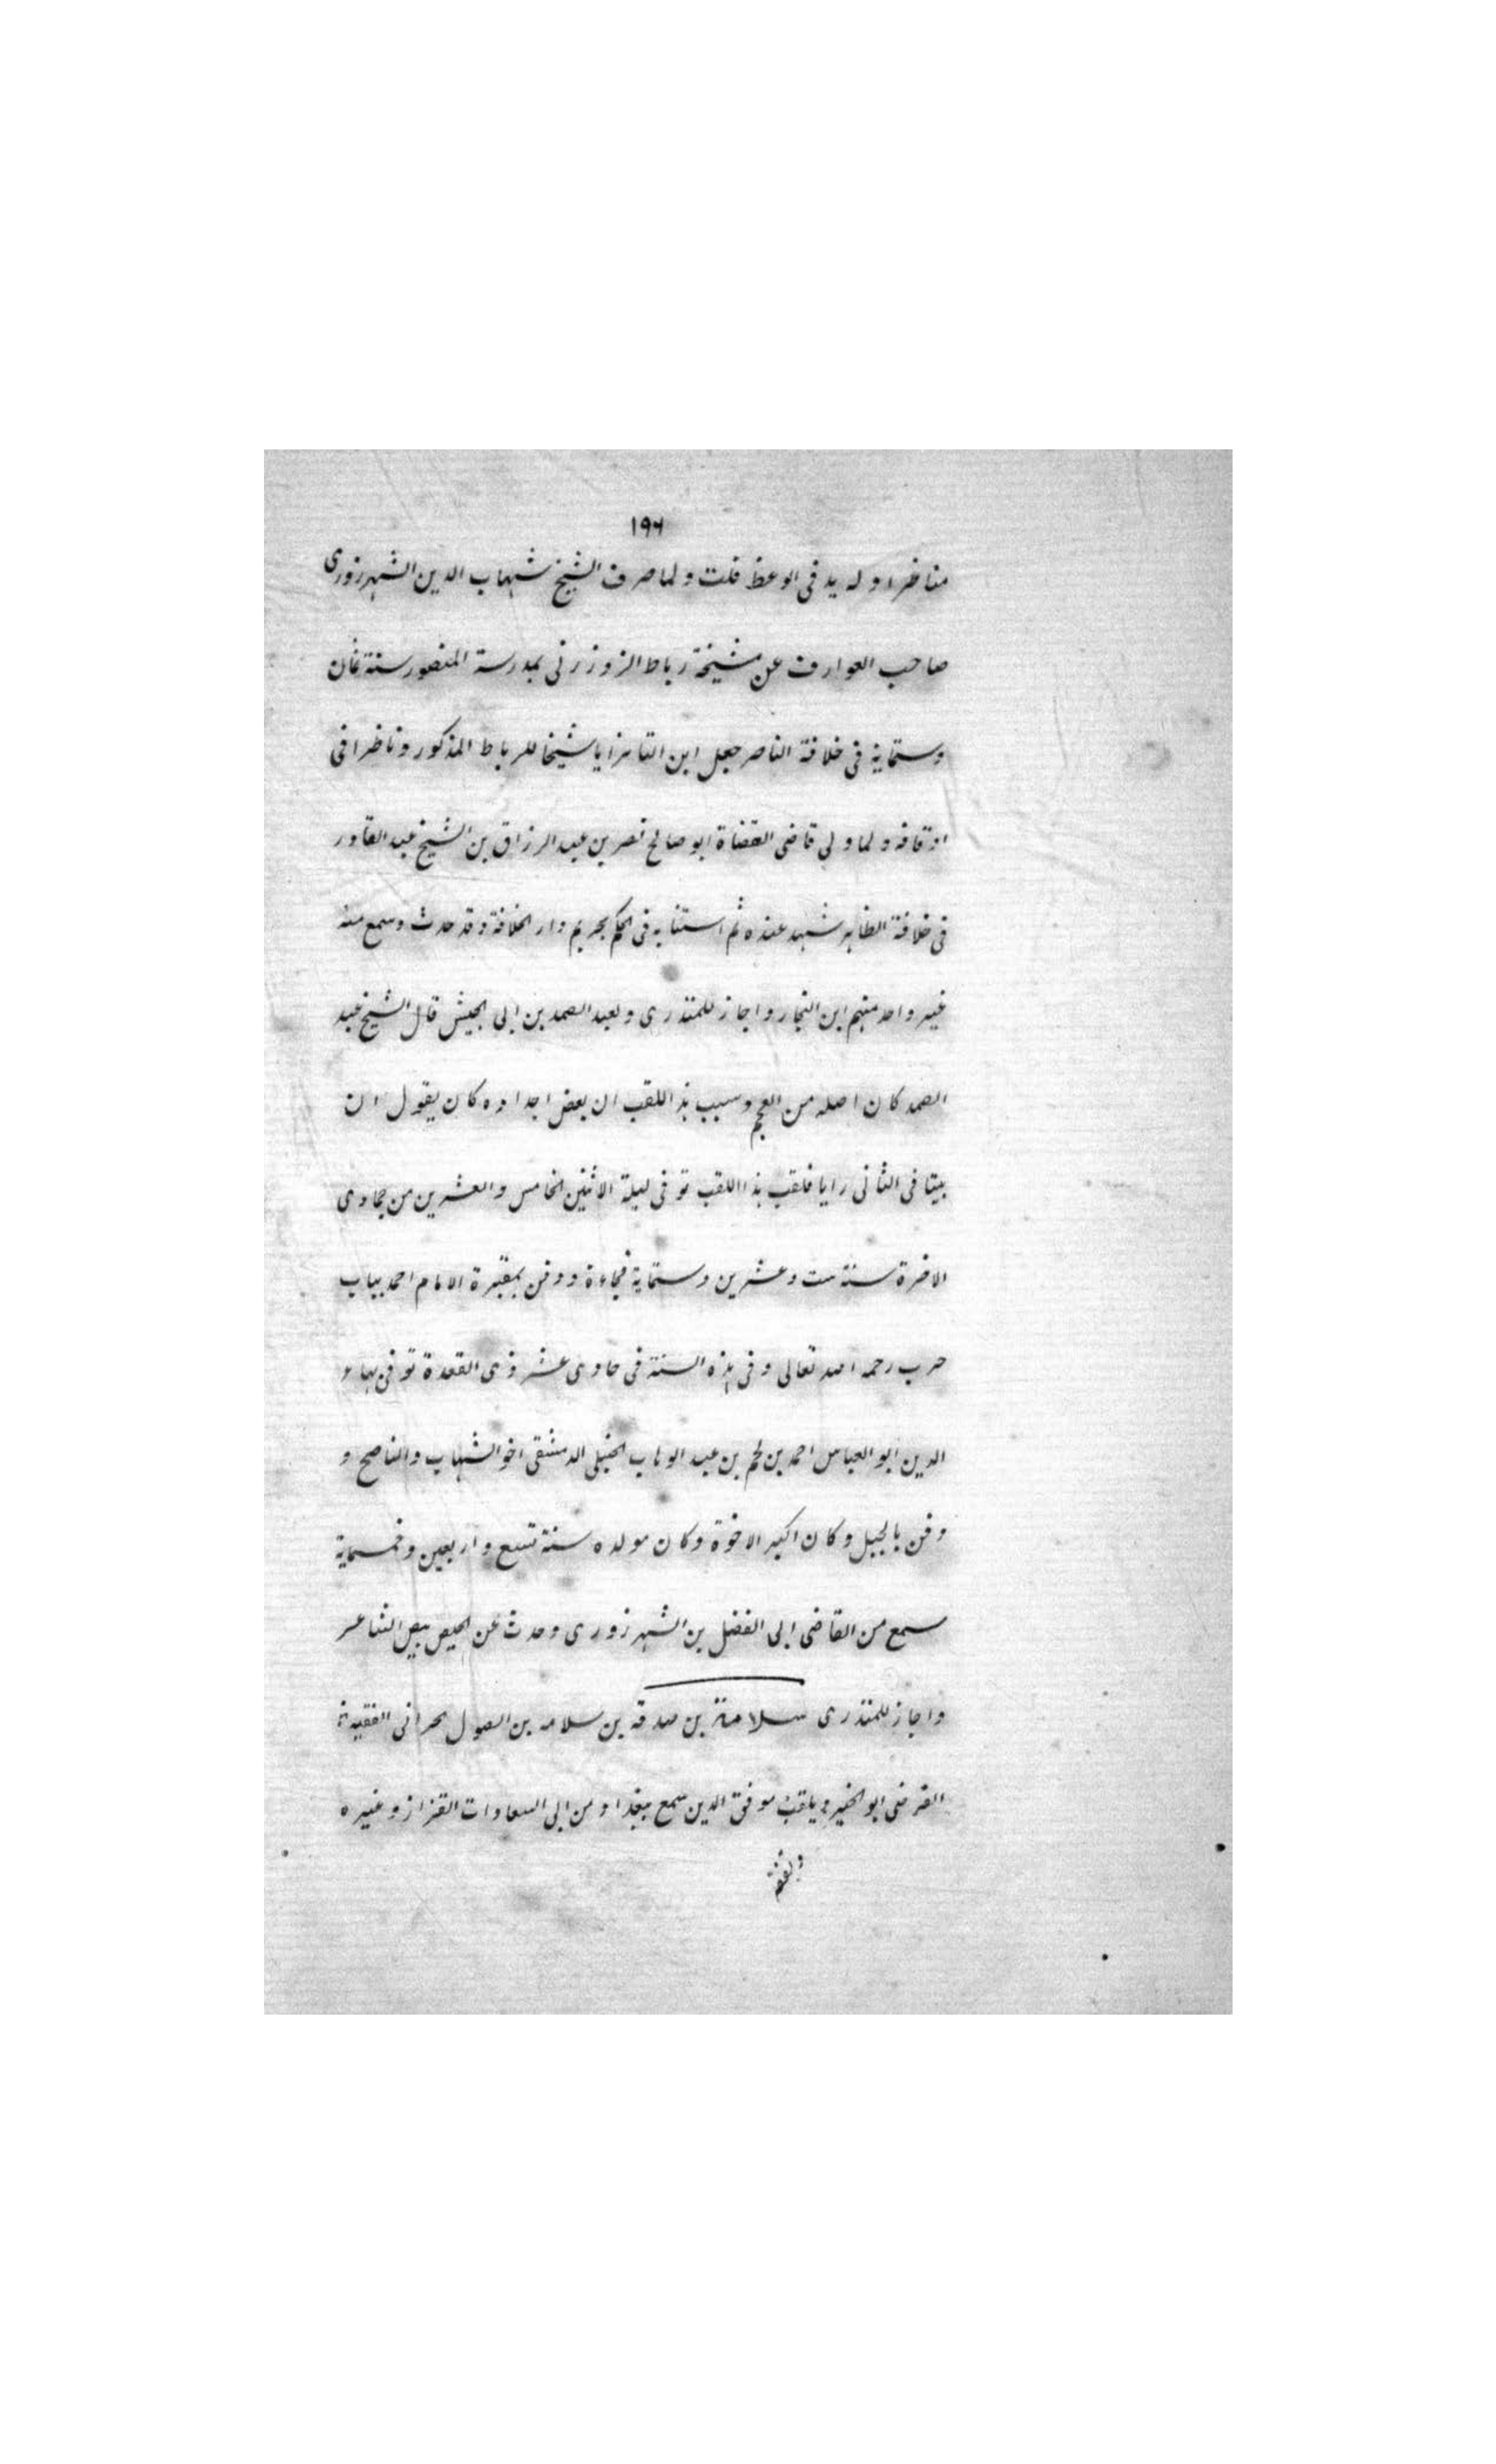 ١٩٦
مناظرا وله يد فى الوعظ قلت ولما صرف الشيخ شهاب الدين الشهرزورى
صاحب العوارف عن مشيخة رباط الزوزنى بمدرسة المنصور سنة ثمان
وستماية فى خلافة الناصر جعل ابن التانرايا شيخا للرباط المذكور وناظرا فى
اوقافه ولما ولى قاضى القضاة ابو صالح نصر بن عبد الرزاق بن الشيخ عبد القادر
فى خلافة الظاهر شهد عنده ثم استنابه فى الحكم بحريم دار الخلافة وقد حدث وسمع منه
غير واحد منهم ابن النجار واجاز للمنذرى ولعبد الصمد بن ابى الجيش قال الشيخ عبد
الصمد كان اصله من العجم وسبب هذا اللقب ان بعض اجداده كان يقول ان
بيتا فى الثانى رايا فلقب هذا اللقب توفى ليلة الاثنين الخامس والعشرين من جمادى
الاخرة سنة ست وعشرين وستماية فجاءة ودفن بمقبرة الامام احمد بباب
حرب رحمه الله تعالى وفى هذه السنة فى حادى عشر ذى القعدة توفى بهاء
الدين ابو العباس احمد بن نجم بن عبد الوهاب الحنبلى الدمشقى اخو الشهاب والناصح و
دفن بالجبل وكان اكبر الاخوة وكان مولده سنة تسع واربعين وخمسماية
سمع من القاضى ابى الفضل بن الشهرزورى وحدث عن الحيص بيص الشاعر
واجاز للمنذرى سلامة بن صدقه بن سلامه بن الصول الحرانى الفقيه
الفرضى ابو الخير ويلقب موفق الدين سمع ببغداد من ابى السعادات القزاز وغيره
وتفقه